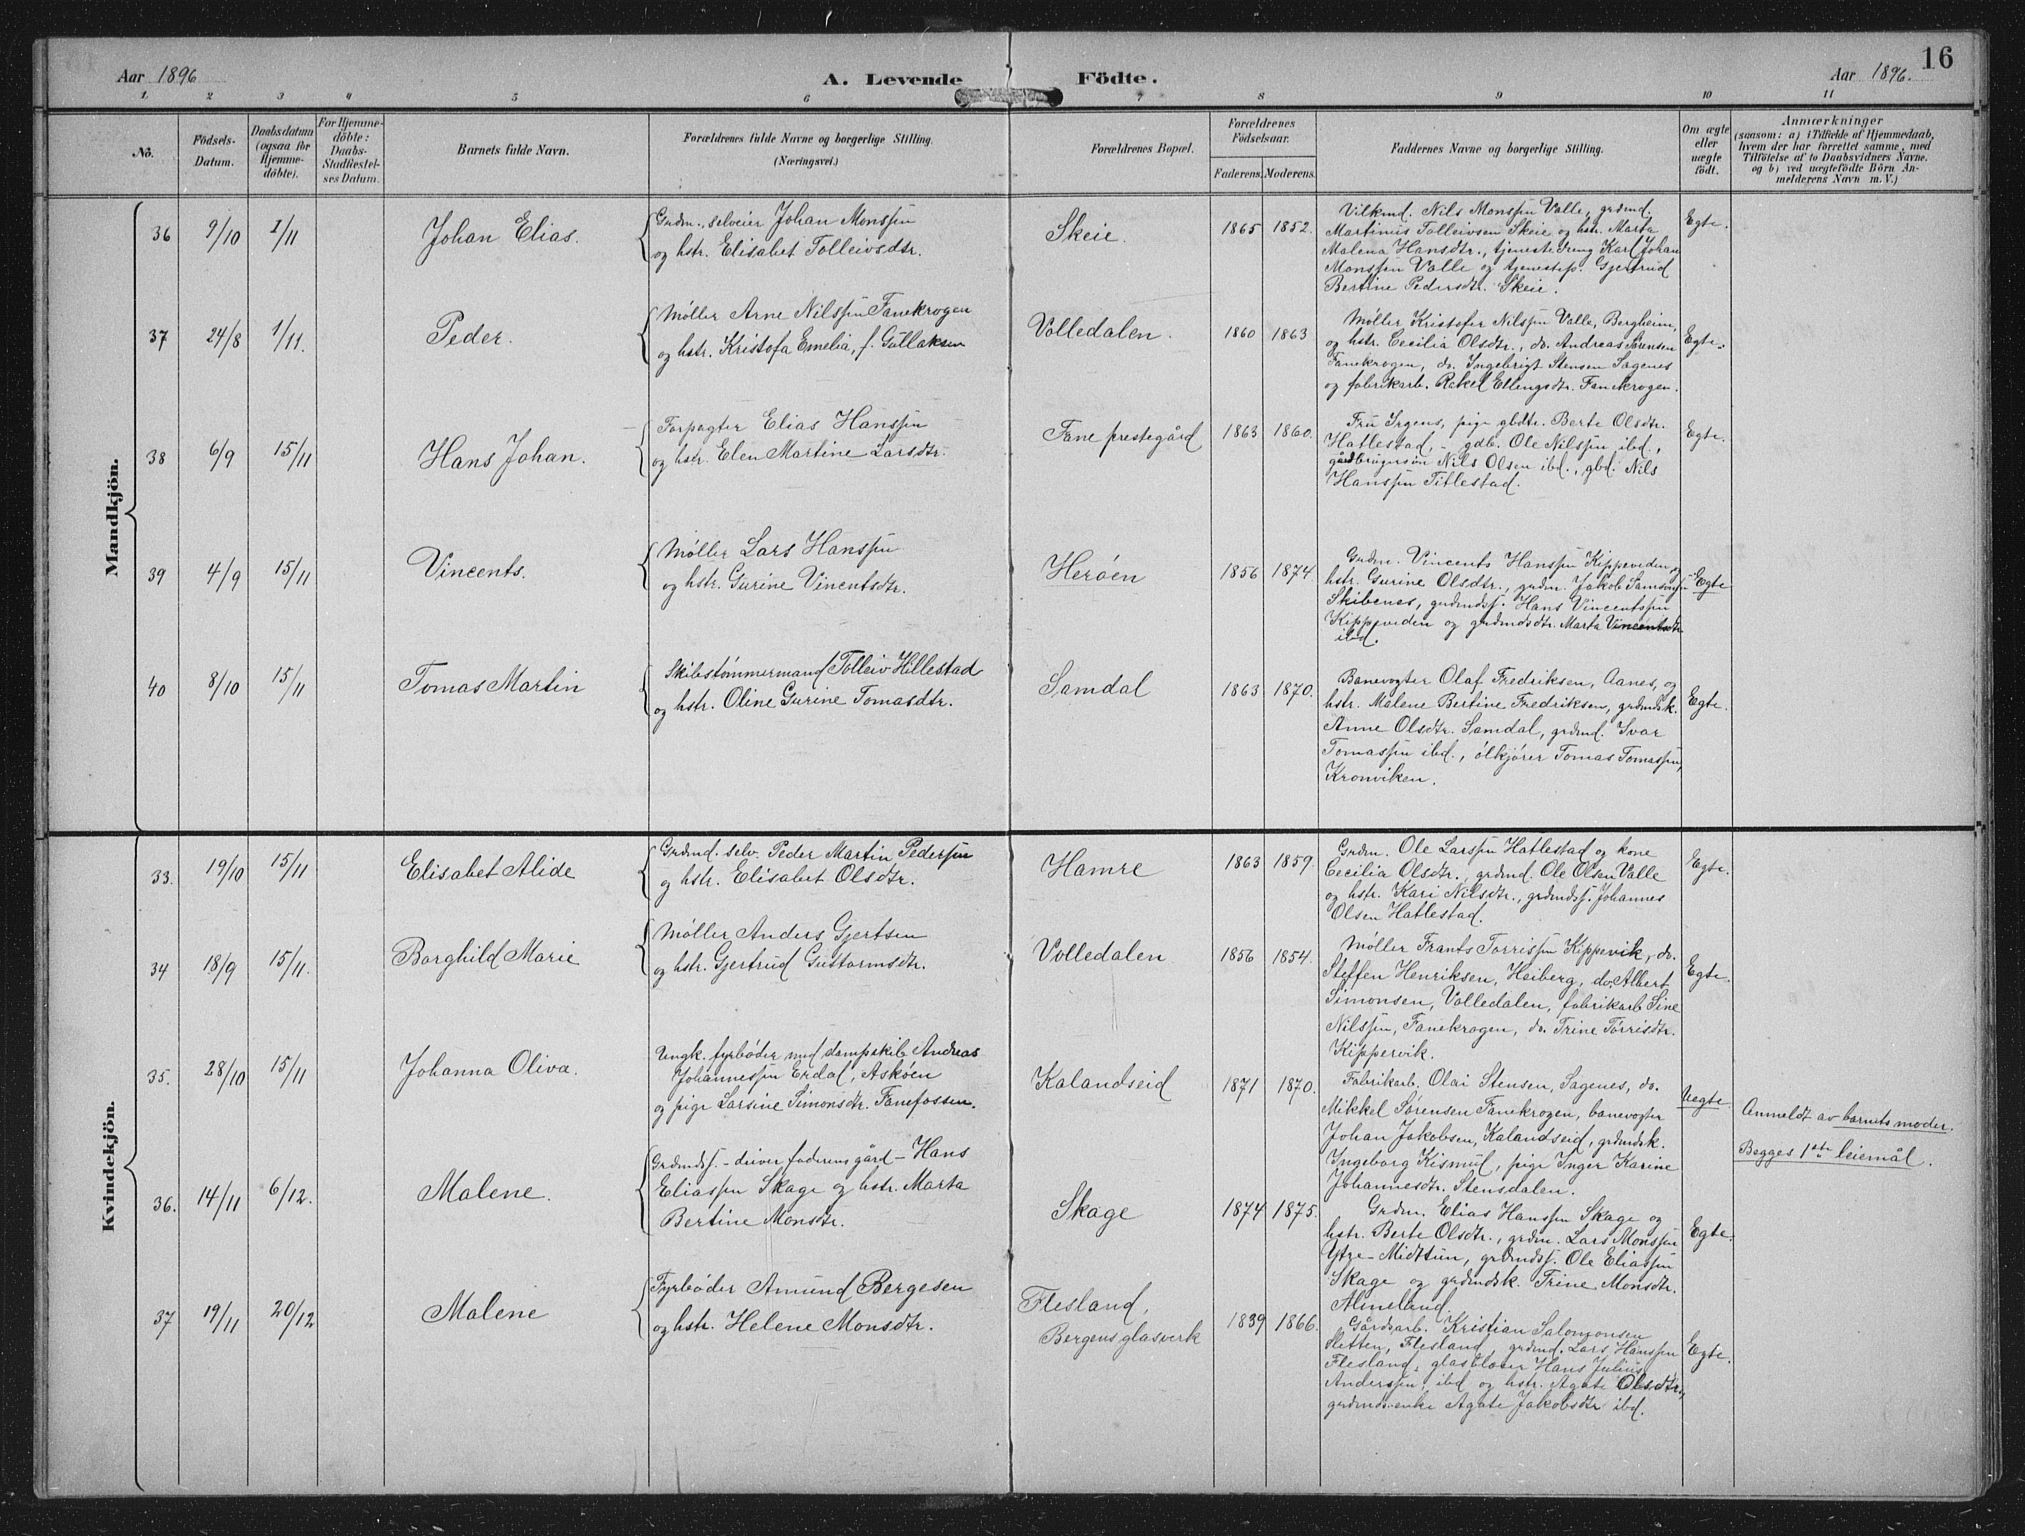 16
Aar 1896
A. Levende Födte.
Aar 1896.
1. 2 3 4 5 6 7 8 9 10 11
No.
Födsels-
Datum.
Daabsdatum
(ogsaa for
Hjemme-
döbte).
For Hjemme-
döbte:
Daabs-
Stadfæstel-
ses Datum.
Barnets fulde Navn.
Forældrenes fulde Navne og borgerlige Stilling.
(Næringsvei.)
Forældrenes Bopæl.
Forældrenes
Födselsaar.
Faderens. Moderens.
Faddernes Navne og borgerlige Stilling.
Om ægte
eller
uægte
födt.
Anmærkninger
(saasom: a) i Tilfælde af Hjemmedaab,
hvem der har forrettet samme, med
Tilföielse af to Daabsvidners Navne.
og b) ved uægtefödte Börn An-
melderens Navn m. V.)
Mandkjön.
36 9/10 1/11 Johan Elias.
Grdm., selveier Johan Monssen
og hstr. Elisabet Tolleivsdtr.
Skeie. 1865 1852.
Vilkmd. Nils Monssen Valle, grdmd.
Martinus Tolleivsen Skeie og hstr. Marta
Malena Hansdtr., tjenestedreng Karl Johan
Monssen Valle og tjenestep. Gjertrud
Bertine Pedersdtr. Skeie.
Egte.
37 24/8 1/11. Peder.
Møller Arne Nilssen Fanekrogen
og hstr. Kristofa Emelia, f. Gullaksen
Volledalen. 1860 1863
Møller Kristofer Nilssen Valle, Bergheim,
og hstr. Cecilia Olsdtr., do. Andreas Sørensen
Fanekrogen, do. Ingebrigt Stensen Sagenes
og fabrikarb. Rakel Ellingsdtr. Fanekrogen.
Egte.
38 6/9 15/11 Hans Johan.
Forpagter Elias Hanssen
og hstr. Elen Martine Larsdtr.
Fane prestegård 1863 1860.
Fru Irgens, pige gbdtr. Berte Olsdtr.
Hatlestad, gdb. Ole Nilssen ibd.,
gårdbrugersøn Nils Olsen ibd., gbd. Nils
Hanssen Titlestad.
Egte.
39 4/9 15/11 Vincents.
Møller Lars Hanssen
og hstr. Gurine Vincentsdtr.
Herøen 1856 1874.
Grdm. Vincents Hanssen Kippeviden og
hstr. Gurine Olsdtr., grdm. Jakob Samsonsen
Skibenes, grdmdss. Hans Vincentssen
Kippeviden og grdmdsdtr. Marta Vincentsdtr
ibd.
Egte
40 8/10 15/11 Tomas Martin
Skibstømmermand Tolleiv Hillestad
og hstr. Oline Gurine Tomasdtr.
Samdal 1863 1870.
Banevogter Olaf Fredriksen, Aanes, og
hstr. Malene Bertine Fredriksen, grdmdsk.
Anne Olsdtr. Samdal, grdmd. Ivar
Tomassen ibd., ølkjører Tomas Tomassen,
Kronviken.
Egte.
Kvindekjön.
33. 19/10 15/11 Elisabet Alide
Grdmd. selv. Peder Martin Pedersen
og hstr. Elisabet Olsdtr.
Hamre 1863 1859.
Grdm. Ole Larssen Hatlestad og kone
Cecilia Olsdtr., grdmd. Ole Olsen Valle
og hstr. Kari Nilsdtr., grdmdss. Johannes
Olsen Hatlestad.
Egte.
34 18/9 15/11. Borghild Marie
Møller Anders Gjertsen
og hstr. Gjertrud Guttormsdtr.
Volledalen 1856 1854.
Møller Frants Torrissen Kippervik, do.
Steffen Henriksen, Heiberg, do. Albert
Simonsen, Volledalen, fabrikarb. Sine
Nilssen, Fanekrogen, do. Trine Torrisdtr.
Kippervik.
Egte.
35. 28/10 15/11 Johanna Oliva.
Ungk. fyrbøder med dampskib Andreas
Johannessen Erdal, Askøen
og pige Larsine Simonsdtr. Fanefossen.
Kalandseid 1871 1870.
Fabrikarb. Olai Stensen, Sagenes, do.
Mikkel Sørensen Fanekrogen, banevogter
Johan Jakobsen, Kalandseid, grdmdsk.
Ingeborg Kismul, pige Inger Karine
Johannesdtr. Stensdalen.
Uegte.
Anmeldt av barnets moder.
Begges 1ste leiemål.
36. 14/11 6/12. Malene.
Grdmdss. - driver faderens gård - Hans
Eliassen Skage og hstr. Marta
Bertine Monsdtr.
Skage 1874 1875.
Grdm. Elias Hanssen Skage og
hstr. Berte Olsdtr., grdm. Lars Monssen
Ytre-Midttun, grdmdss. Ole Eliassen
Skage og grdmdsk. Trine Monsdtr.
Almeland.
Egte.
37 19/11 20/12 Malene
Fyrbøder Amund Bergesen
og hstr. Helene Monsdtr.
Flesland,
Bergens glasverk
1839 1866.
Gårdsarb. Kristian Salomonsen
Sletten, Flesland, grdmd. Lars Hanssen
Flesland, glasblåser Hans Julius
Anderssen, ibd og hstr. Agate Olsdtr.,
grdmdsenke Agate Jakobsdtr ibd.
Egte.